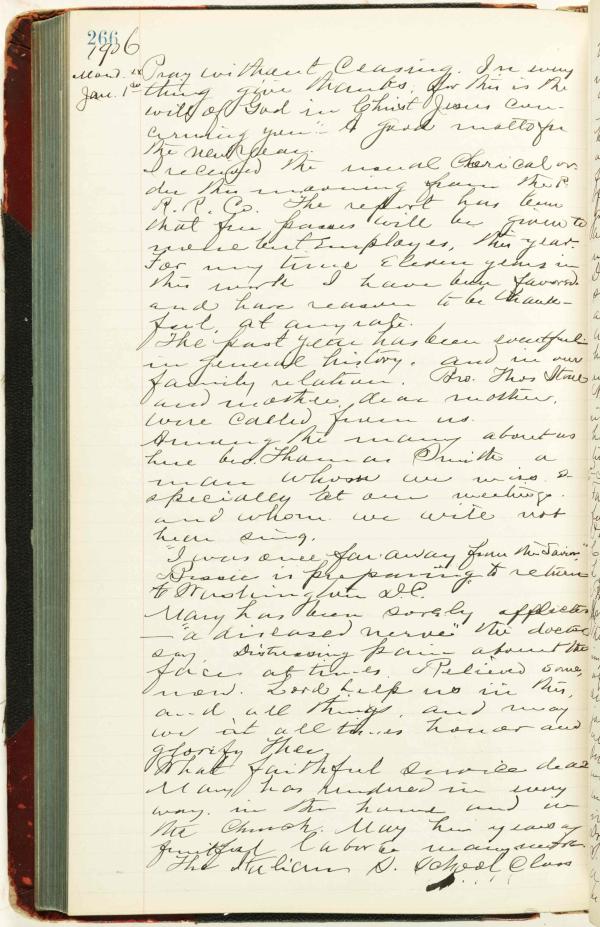 266
1906
Mond.
Jan. 1st
Pray without Ceasing. In every
thing give thanks, for this is the
will of God in Christ Jesus con-
cerning you" A good motto for
the new year.
I received the usual Clerical or-
der this morning from the P.
R. R. Co. The report has been
that free passes will be given to
none but Employes, this year.
For my time Eleven years in
this work I have been favored
and have reason to be thank-
ful, at any rate.
The past year has been eventful
in general history, and in our
family relation. Bro. Thos Stone
and mother, dear mother,
were called from us.
Among the many about us
here bro. Thomas Smith a
man whom we miss e-
specially at our meetings.
and whom we will not
hear sing,
"I was once far away from the Savior"
Bessie is preparing to return
to Washington D.C.
Mary has been sorely afflicted
— "a diseased nerve" the doctor
say Distressing pain about the
face at times. Relieved some,
now. Lord help us in this,
and all things, and may
we at all times honor and
glorify Thee.
What faithful service dear
Mary has rendered in every
way, in the home and in
the Church. May her years of
fruitful labor be many
The Italian S. School Class